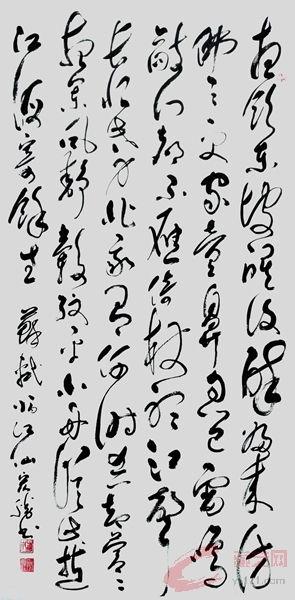 夜飲东坡醒復醉歸来仿
佛三更家童鼻息已雷鳴
敲门都不應倚杖听江聲
长恨此身非我有何时忘却营々
夜阑風靜縠纹平小舟從此逝
江海寄餘生 蘇軾临江仙